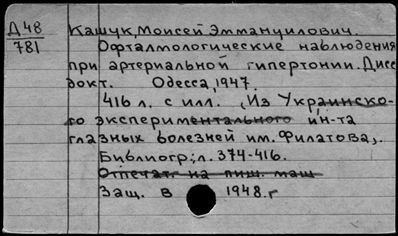 Д 48
781
Кашук, Моисей Эммануилович.
Офтальмологические наблюдения
при артериальной гипертонии. Дисс
докт. Одесса, 1947.
416 л. с илл. (Из Украинско-
го экспериментального ин-та
глазных болезней им. Филатова).
Библиогр; л. 374-416.
Отпечат. на пиш. маш
Защ. в 1948.г